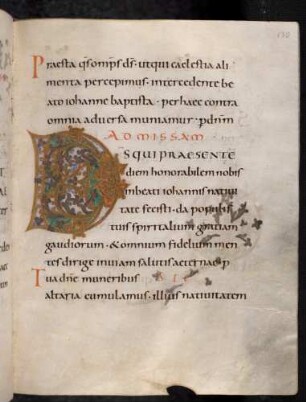 Praesta qs omps ds· ut qui caelestia ali
menta percepimus· intercedente be
ato iohanne baptista· per haec contra
omnia aduersa muniamur· p dnm
AD MISSAM
DS QUI PRAESENTE
diem honorabilem nobis
in beati iohannis natiui
tate fecisti· da populis
tuis spiritalium gratiam
gaudiorum· & omnium fidelium men
tes dirige in uiam salutis aeternae· p
Tua dne muneribus
altaria cumulamus· illius natiuitatem